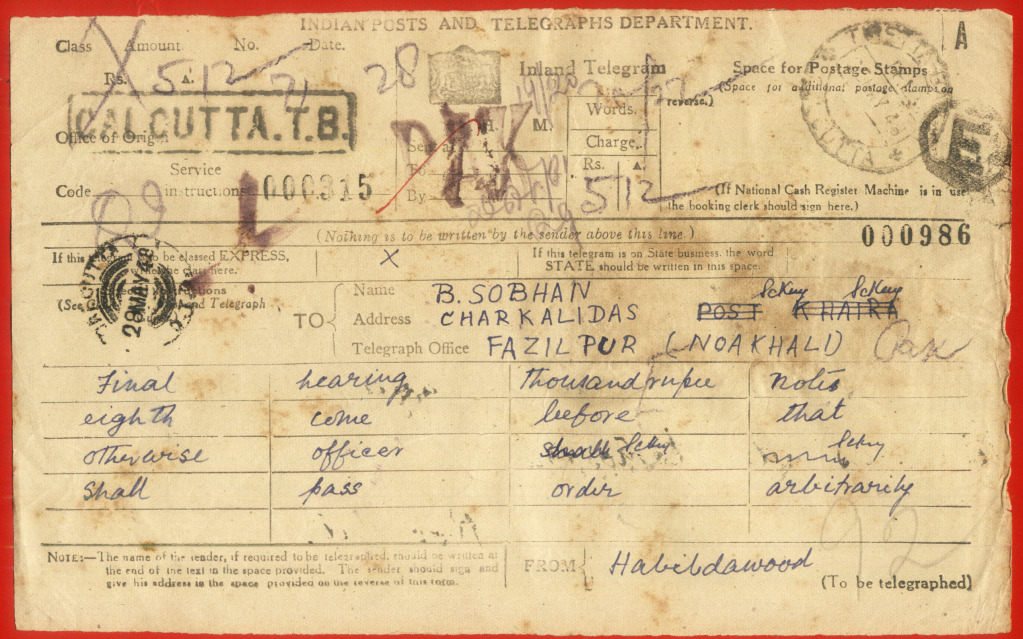 INDIAN POSTS AND TELEGRAPHS DEPARTMENT.
Class Amount. No. Date.
A
Rs. A.
5/12
28
Inland Telegram
Space for Postage Stamps
(Space for additional postage stamps on reverse.)
CALCUTTA.T.B.
Office of Origin
H. M.
Sent at
To
By
Words.
Charge.
Rs. A.
5/12
CUTTA
E
Service
Code instructions
000315
(If National Cash Register Machine is in use
the booking clerk should sign here.)
(Nothing is to be written by the sender above this line)
000986
If this telegram is to be classed EXPRESS,
write the class here.
X
If this telegram is on State business, the word
STATE should be written in this space.
28 MAY 48
TO
Name B. SOBHAN
Address CHARKALIDAS POST KHAIRA
Telegraph Office FAZILPUR (NOAKHALI)
Final hearing thousand rupee notes
eighth come before that
otherwise officer shall
Shall pass order arbitrarily
NOTE:—The name of the sender, if required to be telegraphed, should be written at
the end of the text in the space provided. The sender should sign and
give his address in the space provided on the reverse of this form.
FROM Habibdawood
(To be telegraphed)